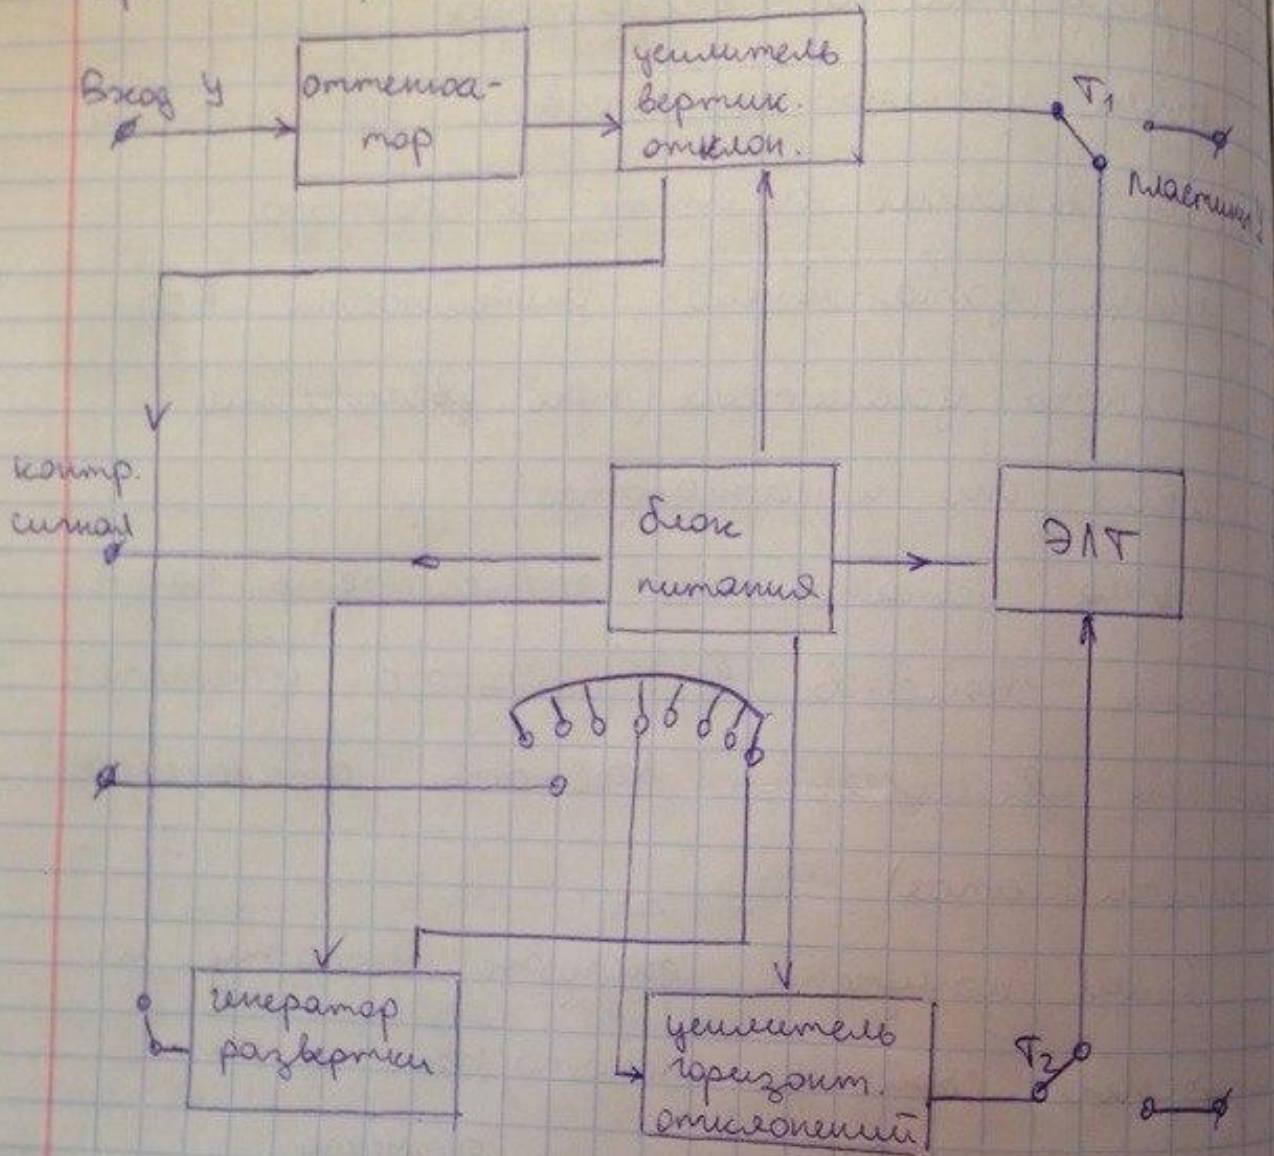 Вход У
оттенюа-
тор
усилитель
вертик.
отклон.
Т1
Пластины
контр.
сигнал
блок
питания
ЭЛТ
генератор
развертки
усилитель
горизонт.
отклонений
Т2